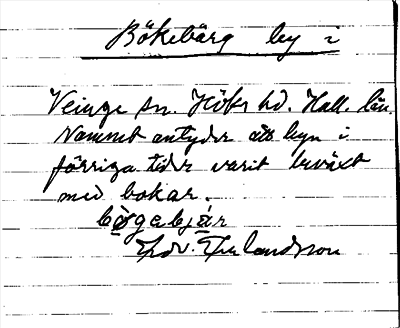 Bökebärg by i
Veinge sn. Höks hd. Hall. län.
Namnet antyder att byn i
förriga tider varit beväxt
med bokar.
bögabjär
Edv. Erlandsson